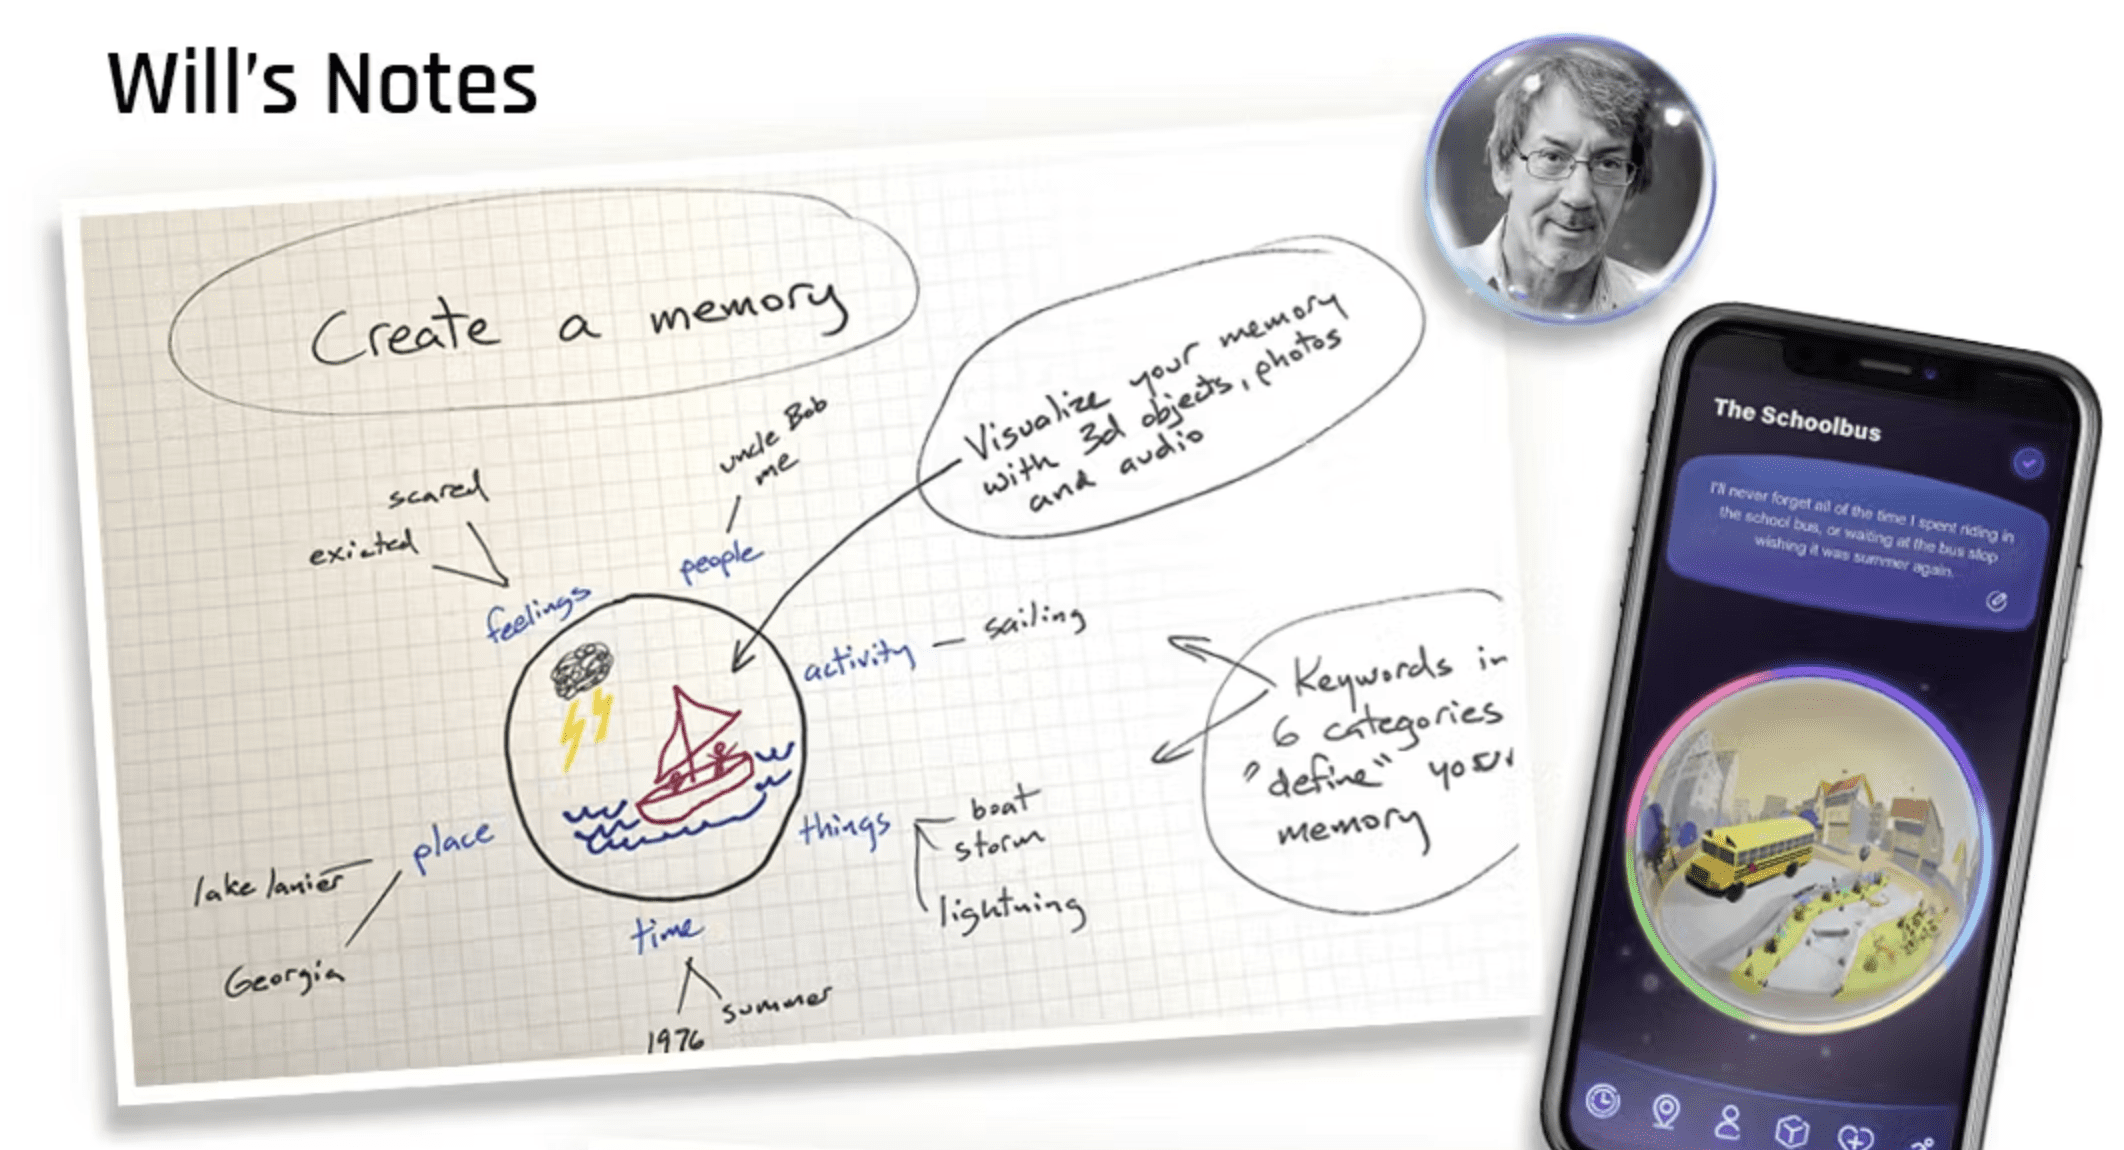 Will's Notes
Create a memory
Visualize your memory
with 3d objects, photos
and audio
uncle Bob
me
people
scared
exicted
feelings
activity
sailing
Keywords in
6 categories
"define" your
memory
things
boat
storm
lightning
place
lake lanier
Georgia
time
summer
1976
The Schoolbus
I'll never forget all of the time I spent riding in
the school bus, or waiting at the bus stop
wishing it was summer again.